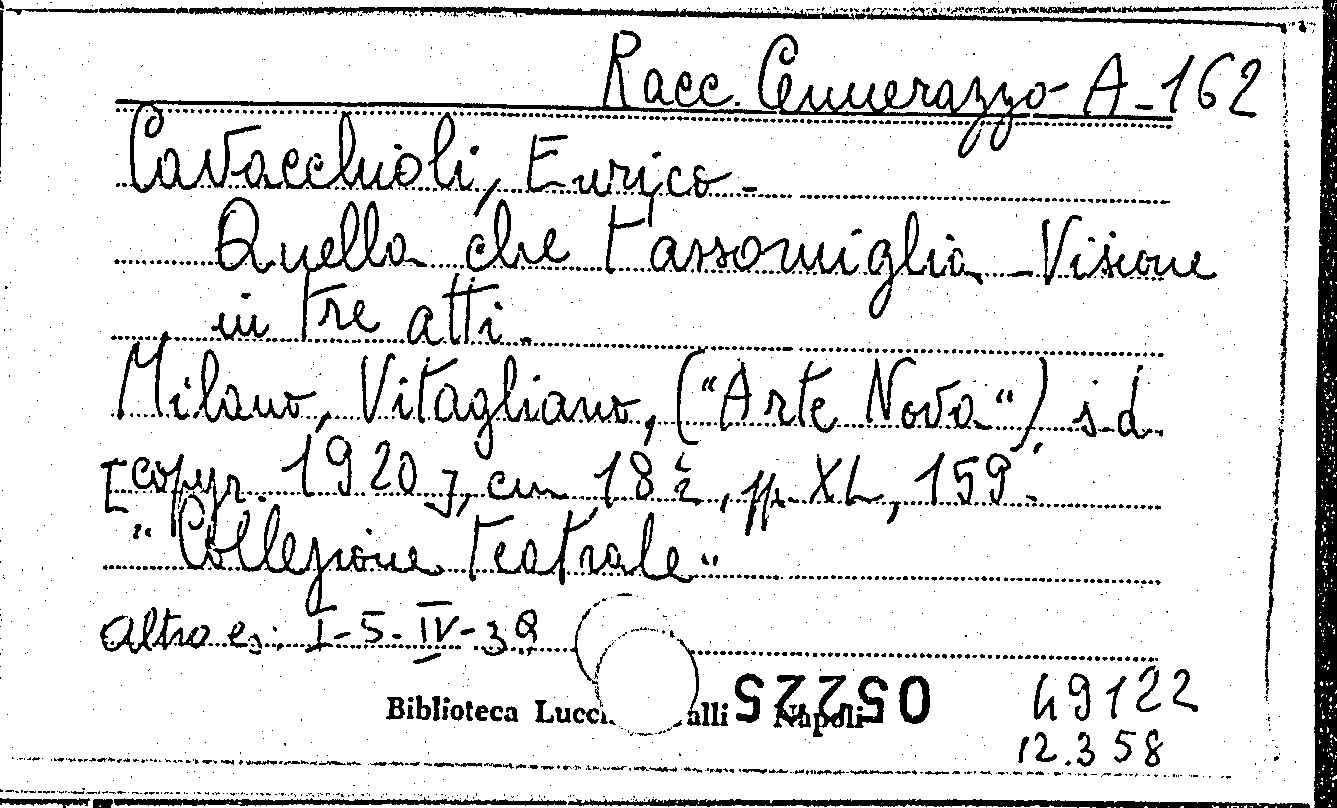 Racc. Cennerazzo - A - 162
Cavacchioli, Enrico -
Quella che t'assomiglia - Visione
in tre atti.
Milano, Vitagliano, ("Arte Nova"), s.d.
[copyr. 1920], cm 18½, pp. XL, 159.
"Collezione teatrale"
Altro es: I - 5 - IV - 32
Biblioteca Lucch alli Napoli
052225
49122
12.3 58